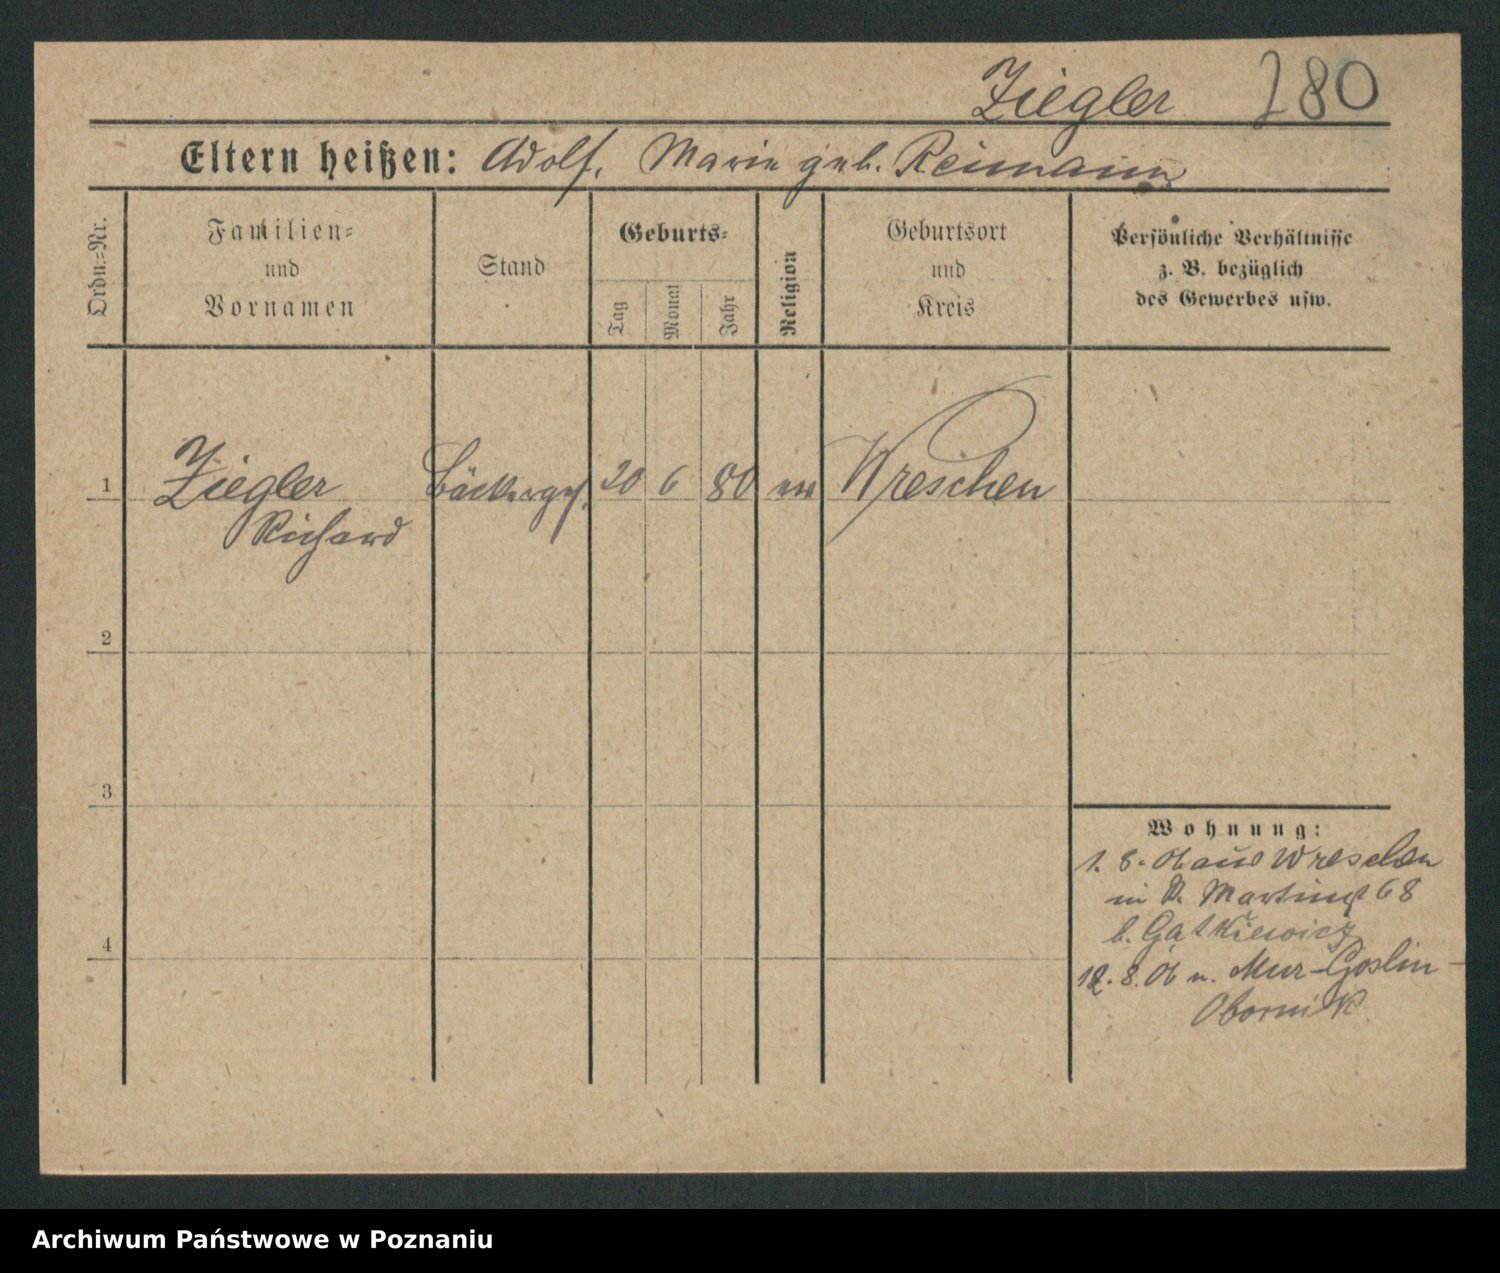 Ziegler 280
Eltern heißen: Adolf, Marie geb. Reimann
Ordn.=Nr.
Familien=
und
Vornamen
Stand
Geburts=
Tag
Monat
Jahr
Religion
Geburtsort
und
Kreis
Persönliche Verhältnisse
z. B. bezüglich
des Gewerbes usw.
1 Ziegler Bäckerges. 20 6 80 ev Wreschen
Richard
2
3
4
Wohnung:
1. 8. 06 aus Wreschen
in St. Martinst 68
b.
12. 8. 06 n. Mur-Goslin-
Obornik
Archiwum Państwowe w Poznaniu